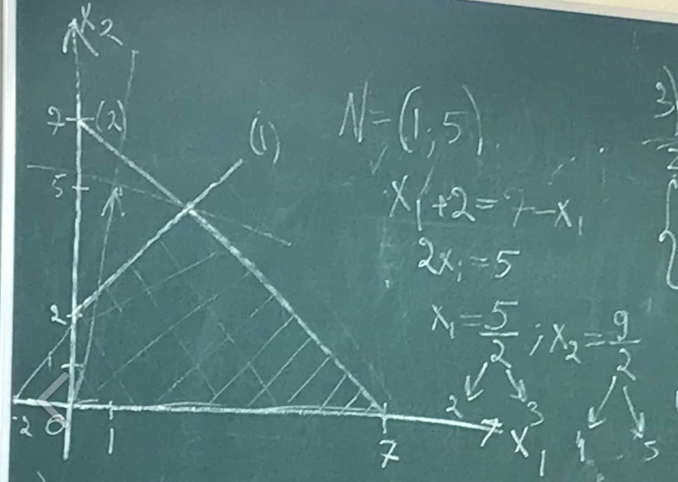 x₂
7 (2)
(1)
5
2
1
-2 0 1 7 x₁
N=(1;5)
x₁+2=7-x₁
2x₁=5
x₁=5/2; x₂=9/2
2 3 4 5
3)